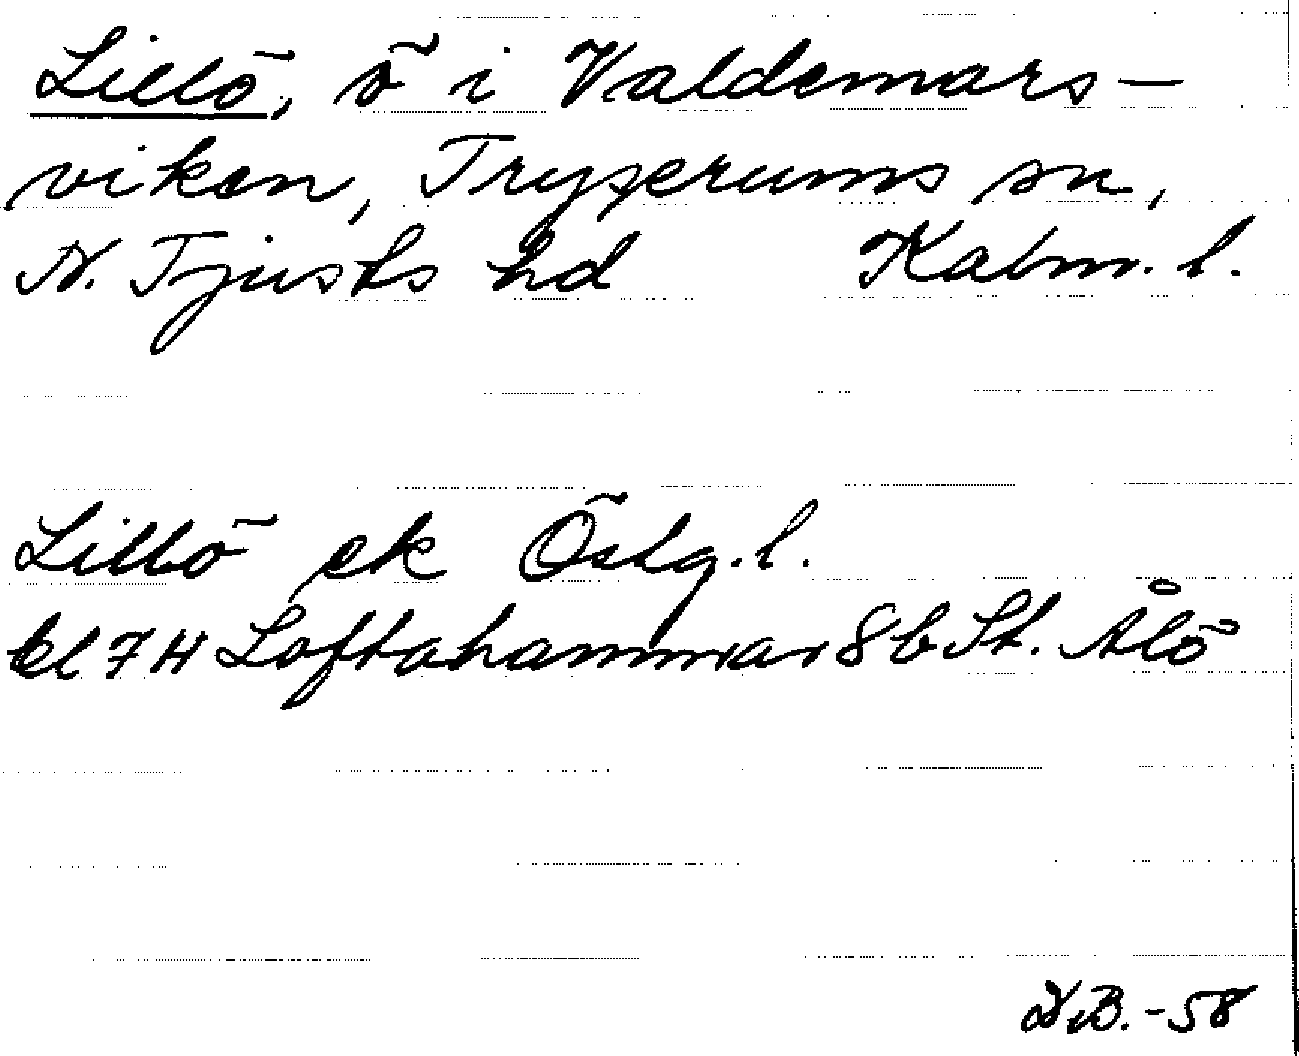 Lillö, ö i Valdemars-
viken, Tryserums sn,
N. Tjusts hd Kalm. l.
Lillö ek Östg. l.
kl 7H Loftahammar 8b St. Ålö
N.B. -58